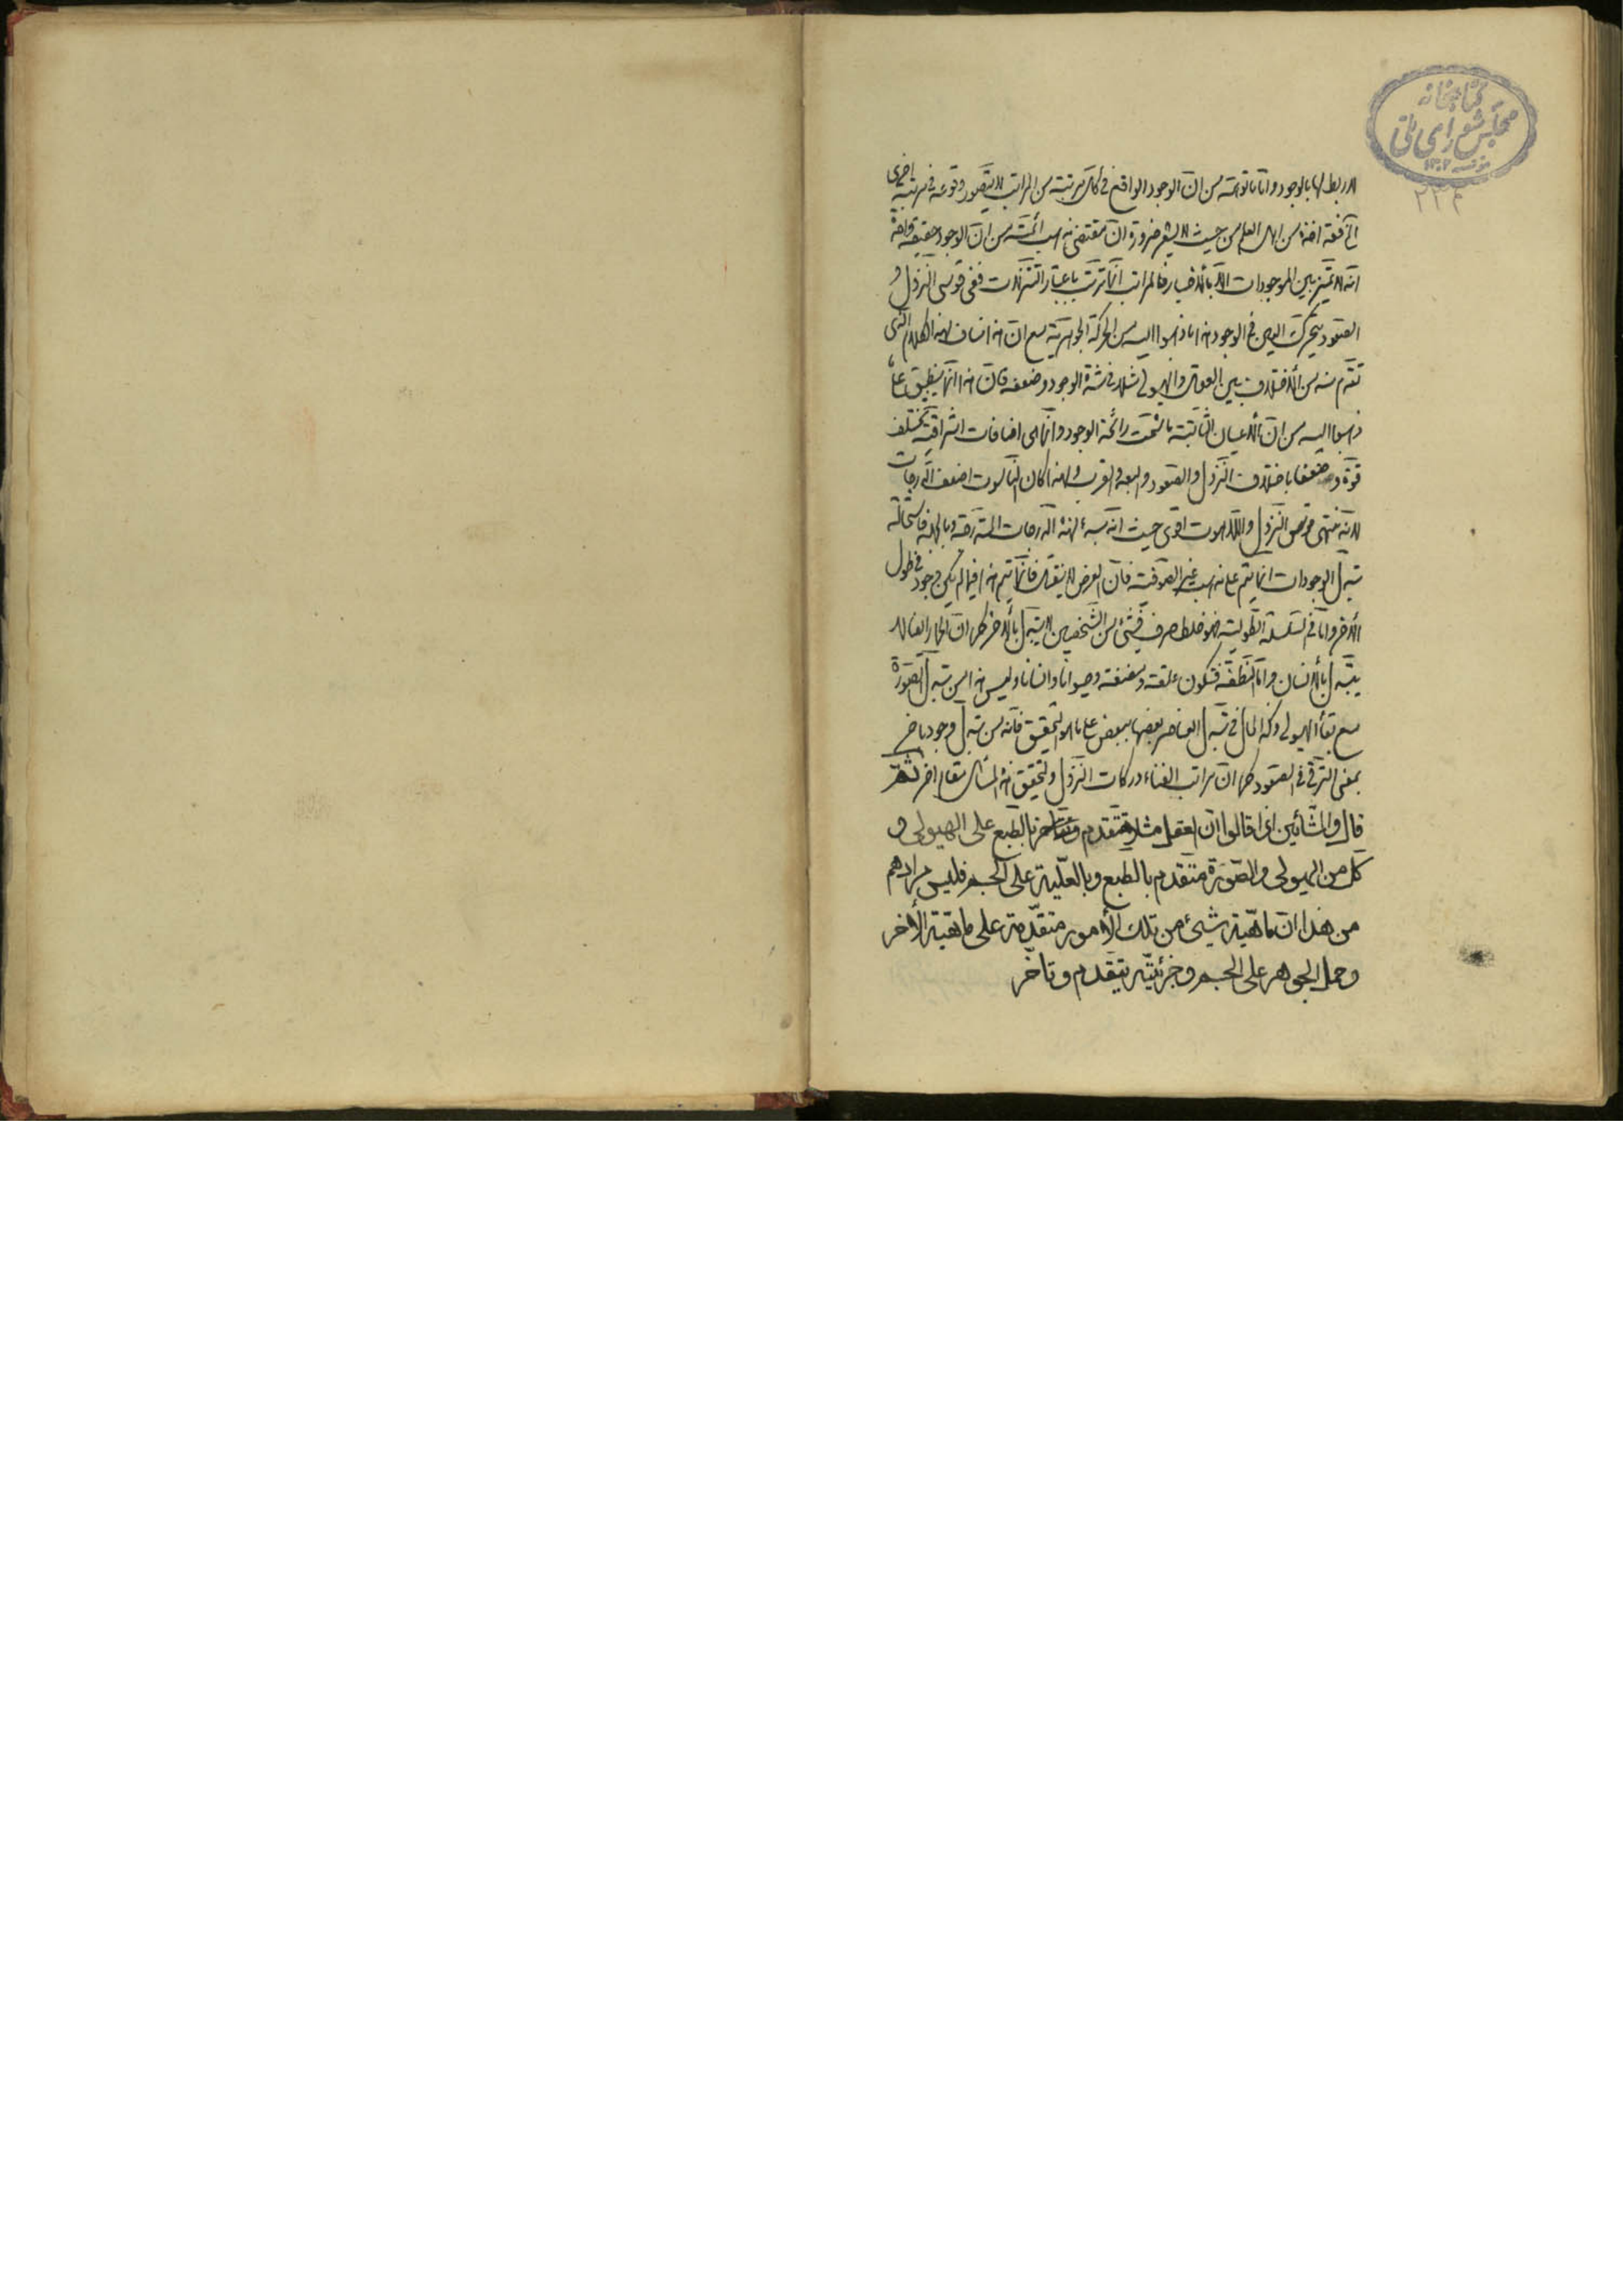 كتابخانه
مجلس شورای ملی
۱۳۰۲
۲۳۴
لا ربط لها بالوجود و اما ما توهمه من ان الوجود الواقع في كل مرتبة من المراتب لا يتصور وقوعه في مرتبة اخرى
من اهل العلم من حيث لا يشعر ضرورة ان مقتضى مذهب ائمته من ان الوجود حقيقة واحدة
انه لا تميز بين الموجودات الا بالاخيار فالمراتب انما ترتب باعتبار التنزلات ففي قوسي النزول و
الصعود يتحرك العين في الوجود هذا ما ذهبوا اليه من الحركة الجوهرية مع ان هذا مناف لهذا الكلام الذي
تقدم منه من الاختلاف بين العقول والهيولى مثلا في شدة الوجود وضعفه فان هذا انما ينطبق على ما
ذهبوا اليه من ان الاعيان الثابتة ما شمت رائحة الوجود وانما هي اضافات اشراقية تختلف
قوة وضعفا باختلاف النزول والصعود والبعد والقرب ولهذا كان الناسوت اضعف الدرجات
لانه منتهى قوس النزول واللاهوت اقوى حيث انه مبدء لهذه الدرجات المتدرجة وبالجملة فاستحالة
تبدل الوجودات انما يتم على مذهب غير الصوفية فان العرض لا ينتقل فانما يتم هذا فيما لم يكن وجود في طول
الاخر واما في السلسلة الطولية فهو غلط صرف فشيء من الشخصين لا يتبدل بالاخر كما ان الحمار ايضا لا
يتبدل بالانسان واما النطفة فتكون علقة ومضغة وحيوانا وانسانا وليس هذا من تبدل الصورة
مع بقاء الهيولى وكذا الحال في تبدل العناصر بعضها ببعض على ما هو التحقيق فانه من تبدل وجود باخر
بمعنى الترقي في الصعود كما ان مراتب الفناء دركات النزول ولتحقيق هذه المسائل مقام اخر ثم
قال والمشائين اذا قالوا ان العقل مثلا متقدم بالطبع على الهيولى و
كل من الهيولى والصورة متقدم بالطبع وبالعلية على الجسم فليس مرادهم
من هذا ان ماهية شيئ من تلك الأمور متقدمة على ماهية الأخر
وحمل الجوهر على الجسم وجزئيه بتقدم وتاخر